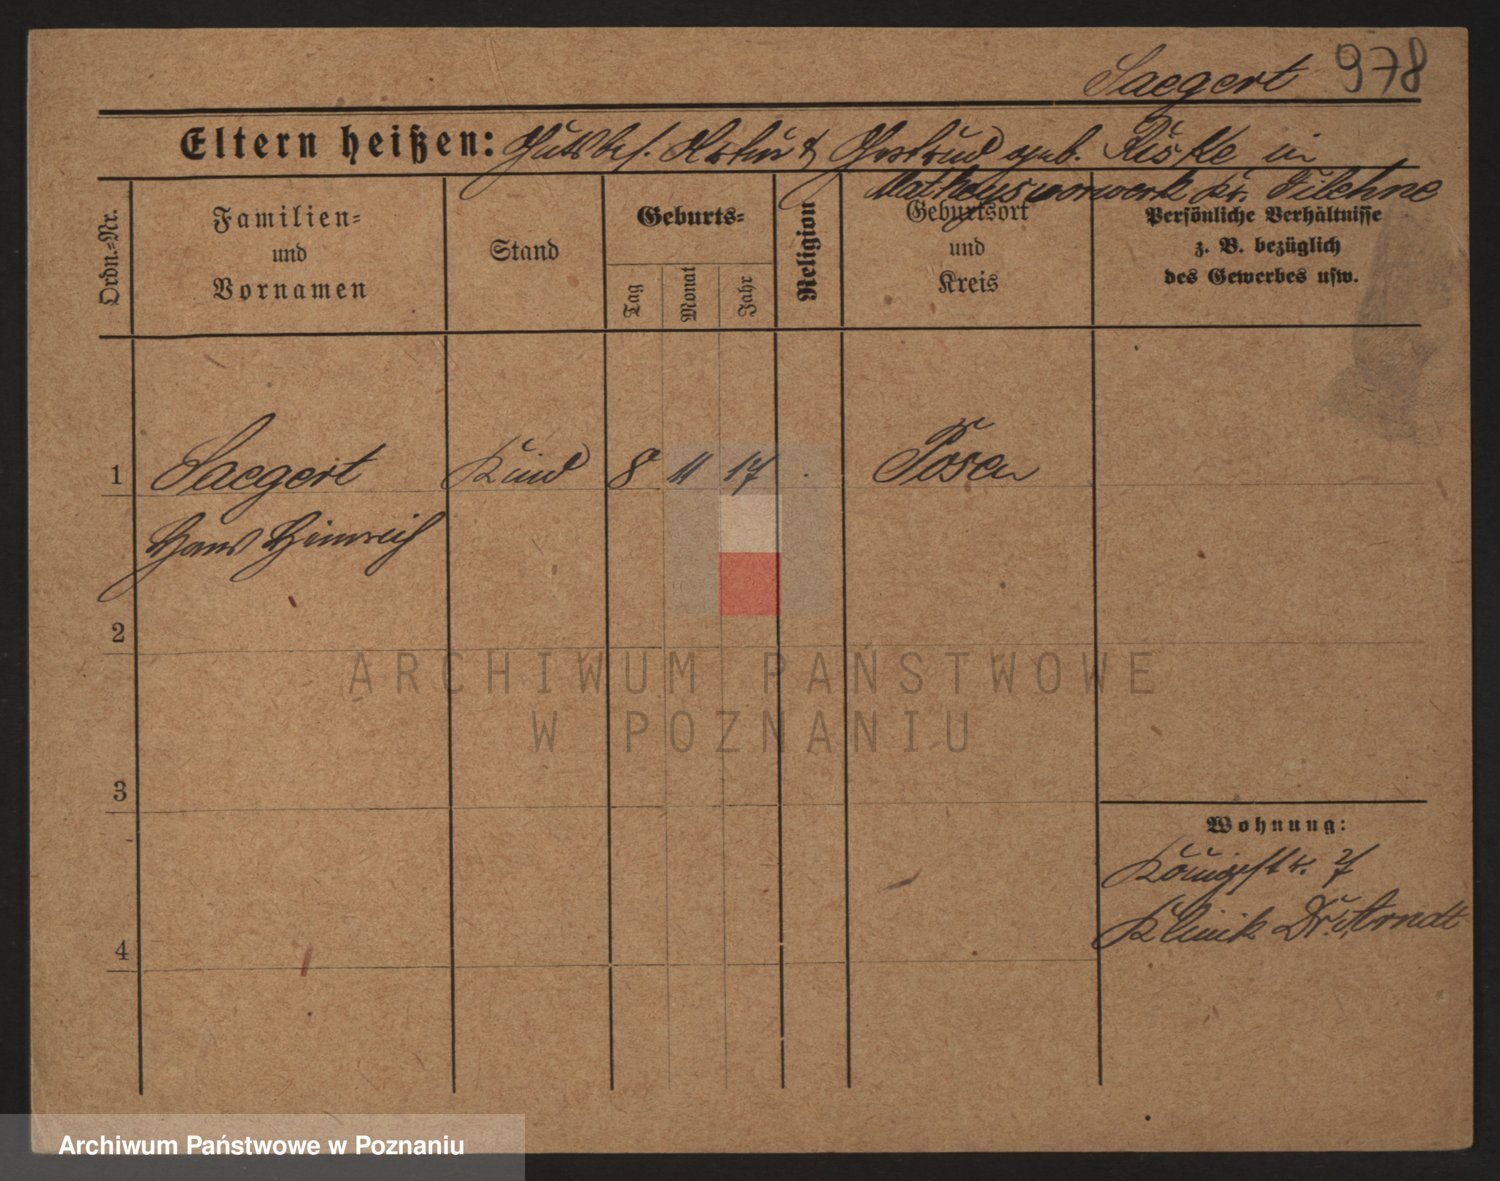 Saegert 978
Eltern heißen: Gutsbes. Artur & Gertrud geb. Riske in
Matheysvorwerk Kr. Filehne
Ordn.-Nr.
Familien-
und
Vornamen
Stand
Geburts-
Tag
Monat
Jahr
Religion
Geburtsort
und
Kreis
Persönliche Verhältnisse
z. B. bezüglich
des Gewerbes usw.
1 Saegert Kind 8 11 17 . Posen
Hans Heinrich
2
3
4
Wohnung:
Königstr. 7
Klinik Dr. Arndt
ARCHIWUM PAŃSTWOWE
W POZNANIU
Archiwum Państwowe w Poznaniu